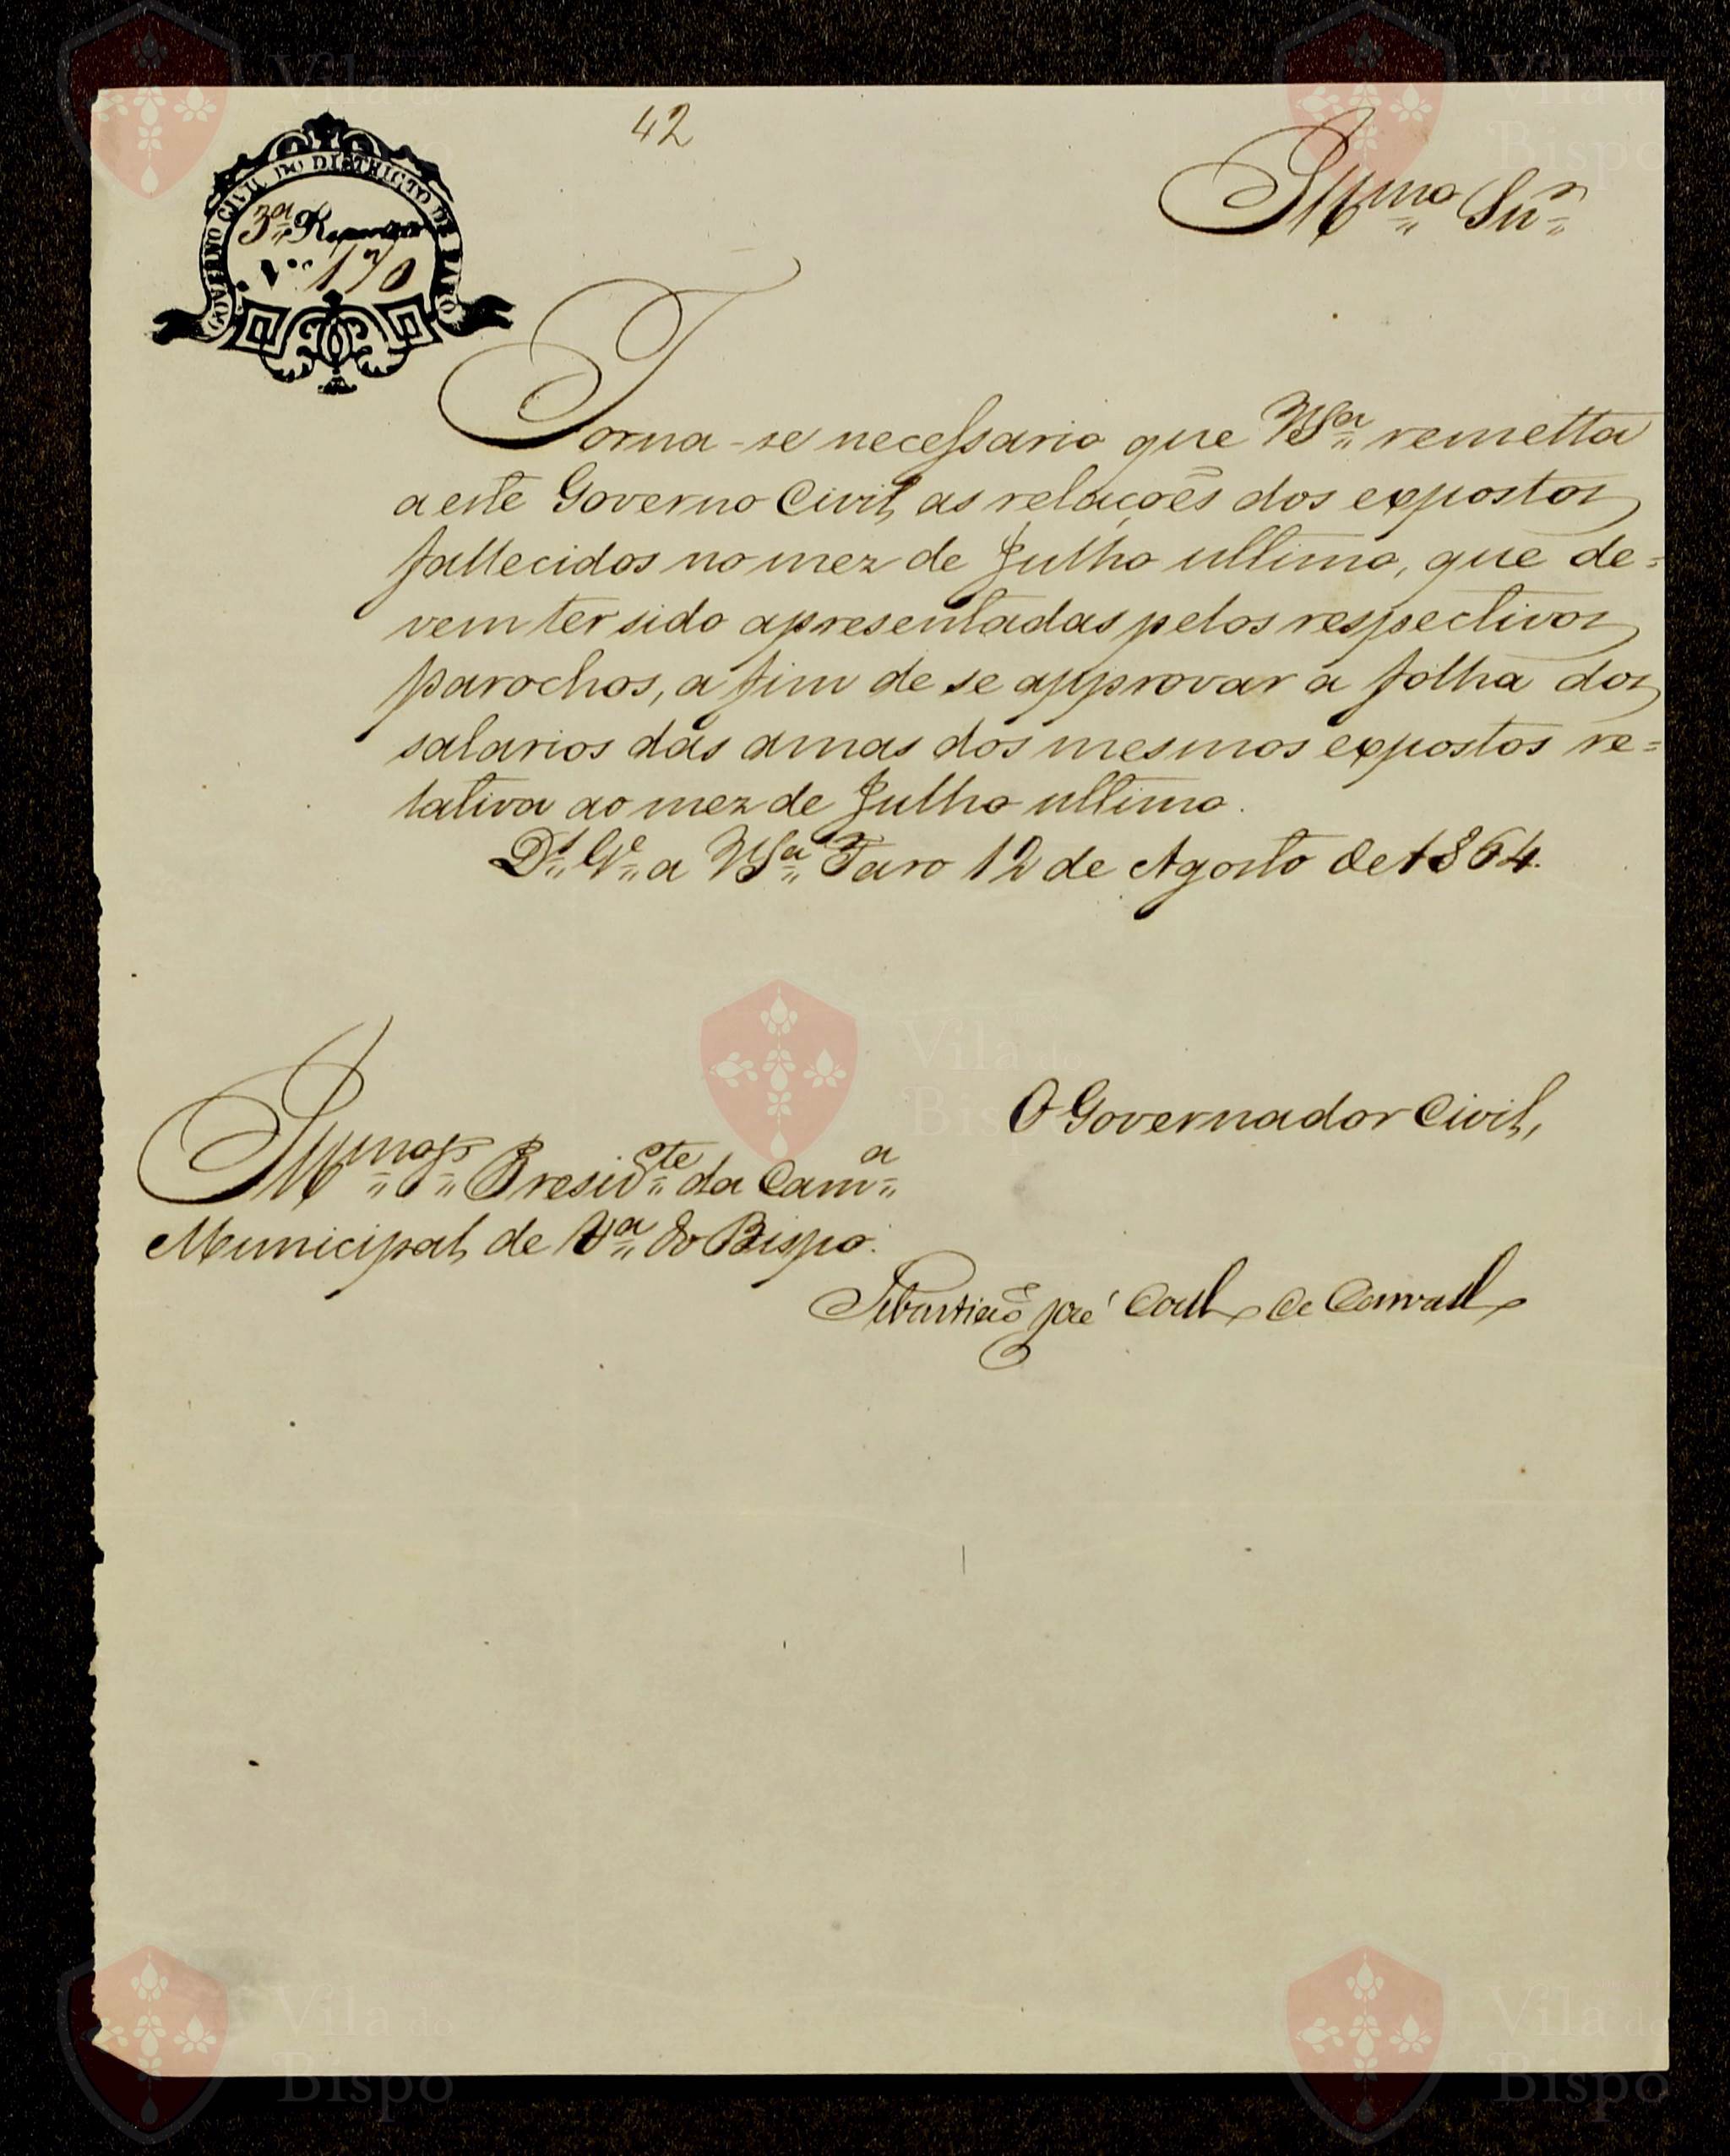 42
GOVERNO CIVIL DO DISTRICTO DE FARO
3ª Repartição
N.º 170
Illmo Snr
Torna-se necessario que V Sª remetta
a este Governo Civil, as relações dos expostos
fallecidos no mez de Julho ultimo, que de=
vem ter sido apresentadas pelos respectivos
parochos, a fim de se approvar a folha dos
salarios das amas dos mesmos expostos re=
lativa ao mez de Julho ultimo.
Ds Ge a V Sª Faro 12 de Agosto de 1864.
O Governador Civil,
Illmo Sr Presidte da Camª
Municipal de Vª do Bispo.
Sebastião José Coelho de Carvalho
Vila do
Bispo
Vila do
Bispo
Vila do
Bispo
Vila do
Bispo
Vila do
Bispo